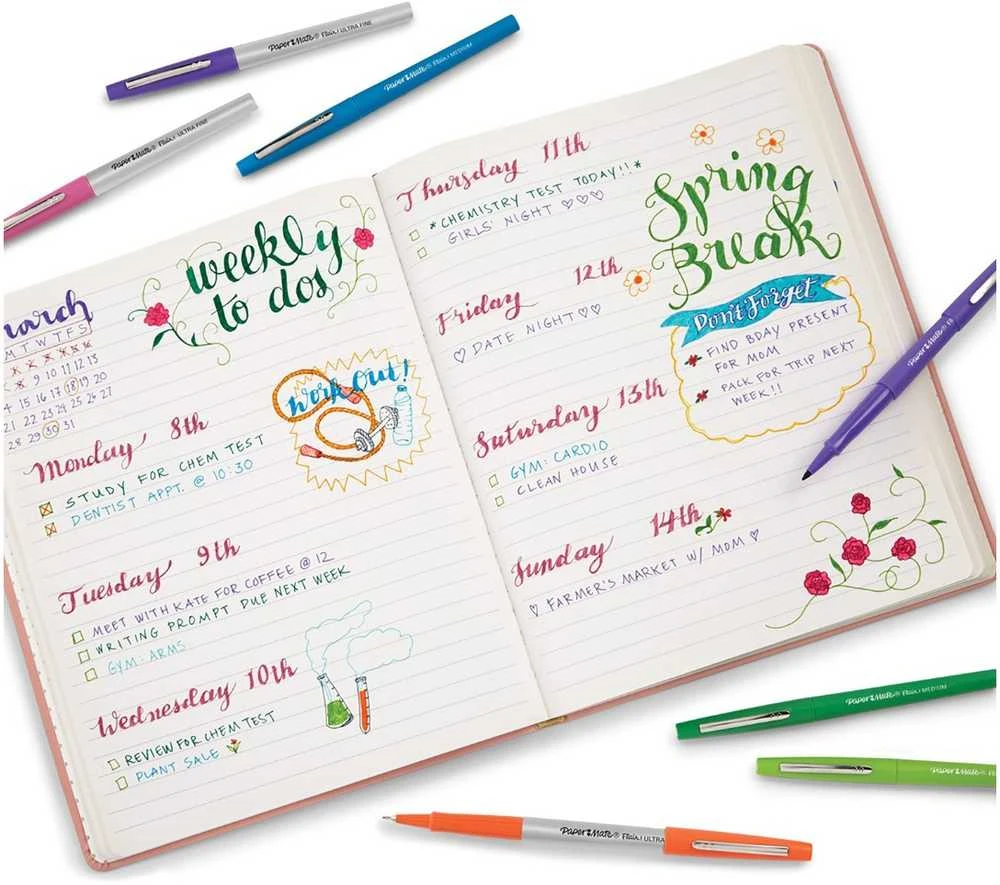 Paper Mate® Flair. ULTRA FINE
Paper Mate® Flair. MEDIUM
Paper Mate® Flair. ULTRA FINE
weekly
to dos
M T W T F S
9 10 11 12 13
15 16 17 18 19 20
21 22 23 24 25 26 27
28 29 30 31
Work Out!
Monday 8th
STUDY FOR CHEM TEST
DENTIST APPT. @ 10:30
Tuesday 9th
MEET WITH KATE FOR COFFEE @ 12
WRITING PROMPT DUE NEXT WEEK
GYM: ARMS
Wednesday 10th
REVIEW FOR CHEM TEST
PLANT SALE
Thursday 11th
*CHEMISTRY TEST TODAY!!*
GIRLS' NIGHT ♡♡♡
Friday 12th
♡ DATE NIGHT ♡♡
Saturday 13th
GYM: CARDIO
CLEAN HOUSE
Sunday 14th
♡ FARMER'S MARKET W/ MOM ♡
Spring
Break
Don't Forget
FIND BDAY PRESENT
FOR MOM
PACK FOR TRIP NEXT
WEEK!!
Paper Mate®
Paper Mate® Flair. MEDIUM
Paper Mate®
Paper Mate® Flair. ULTRA